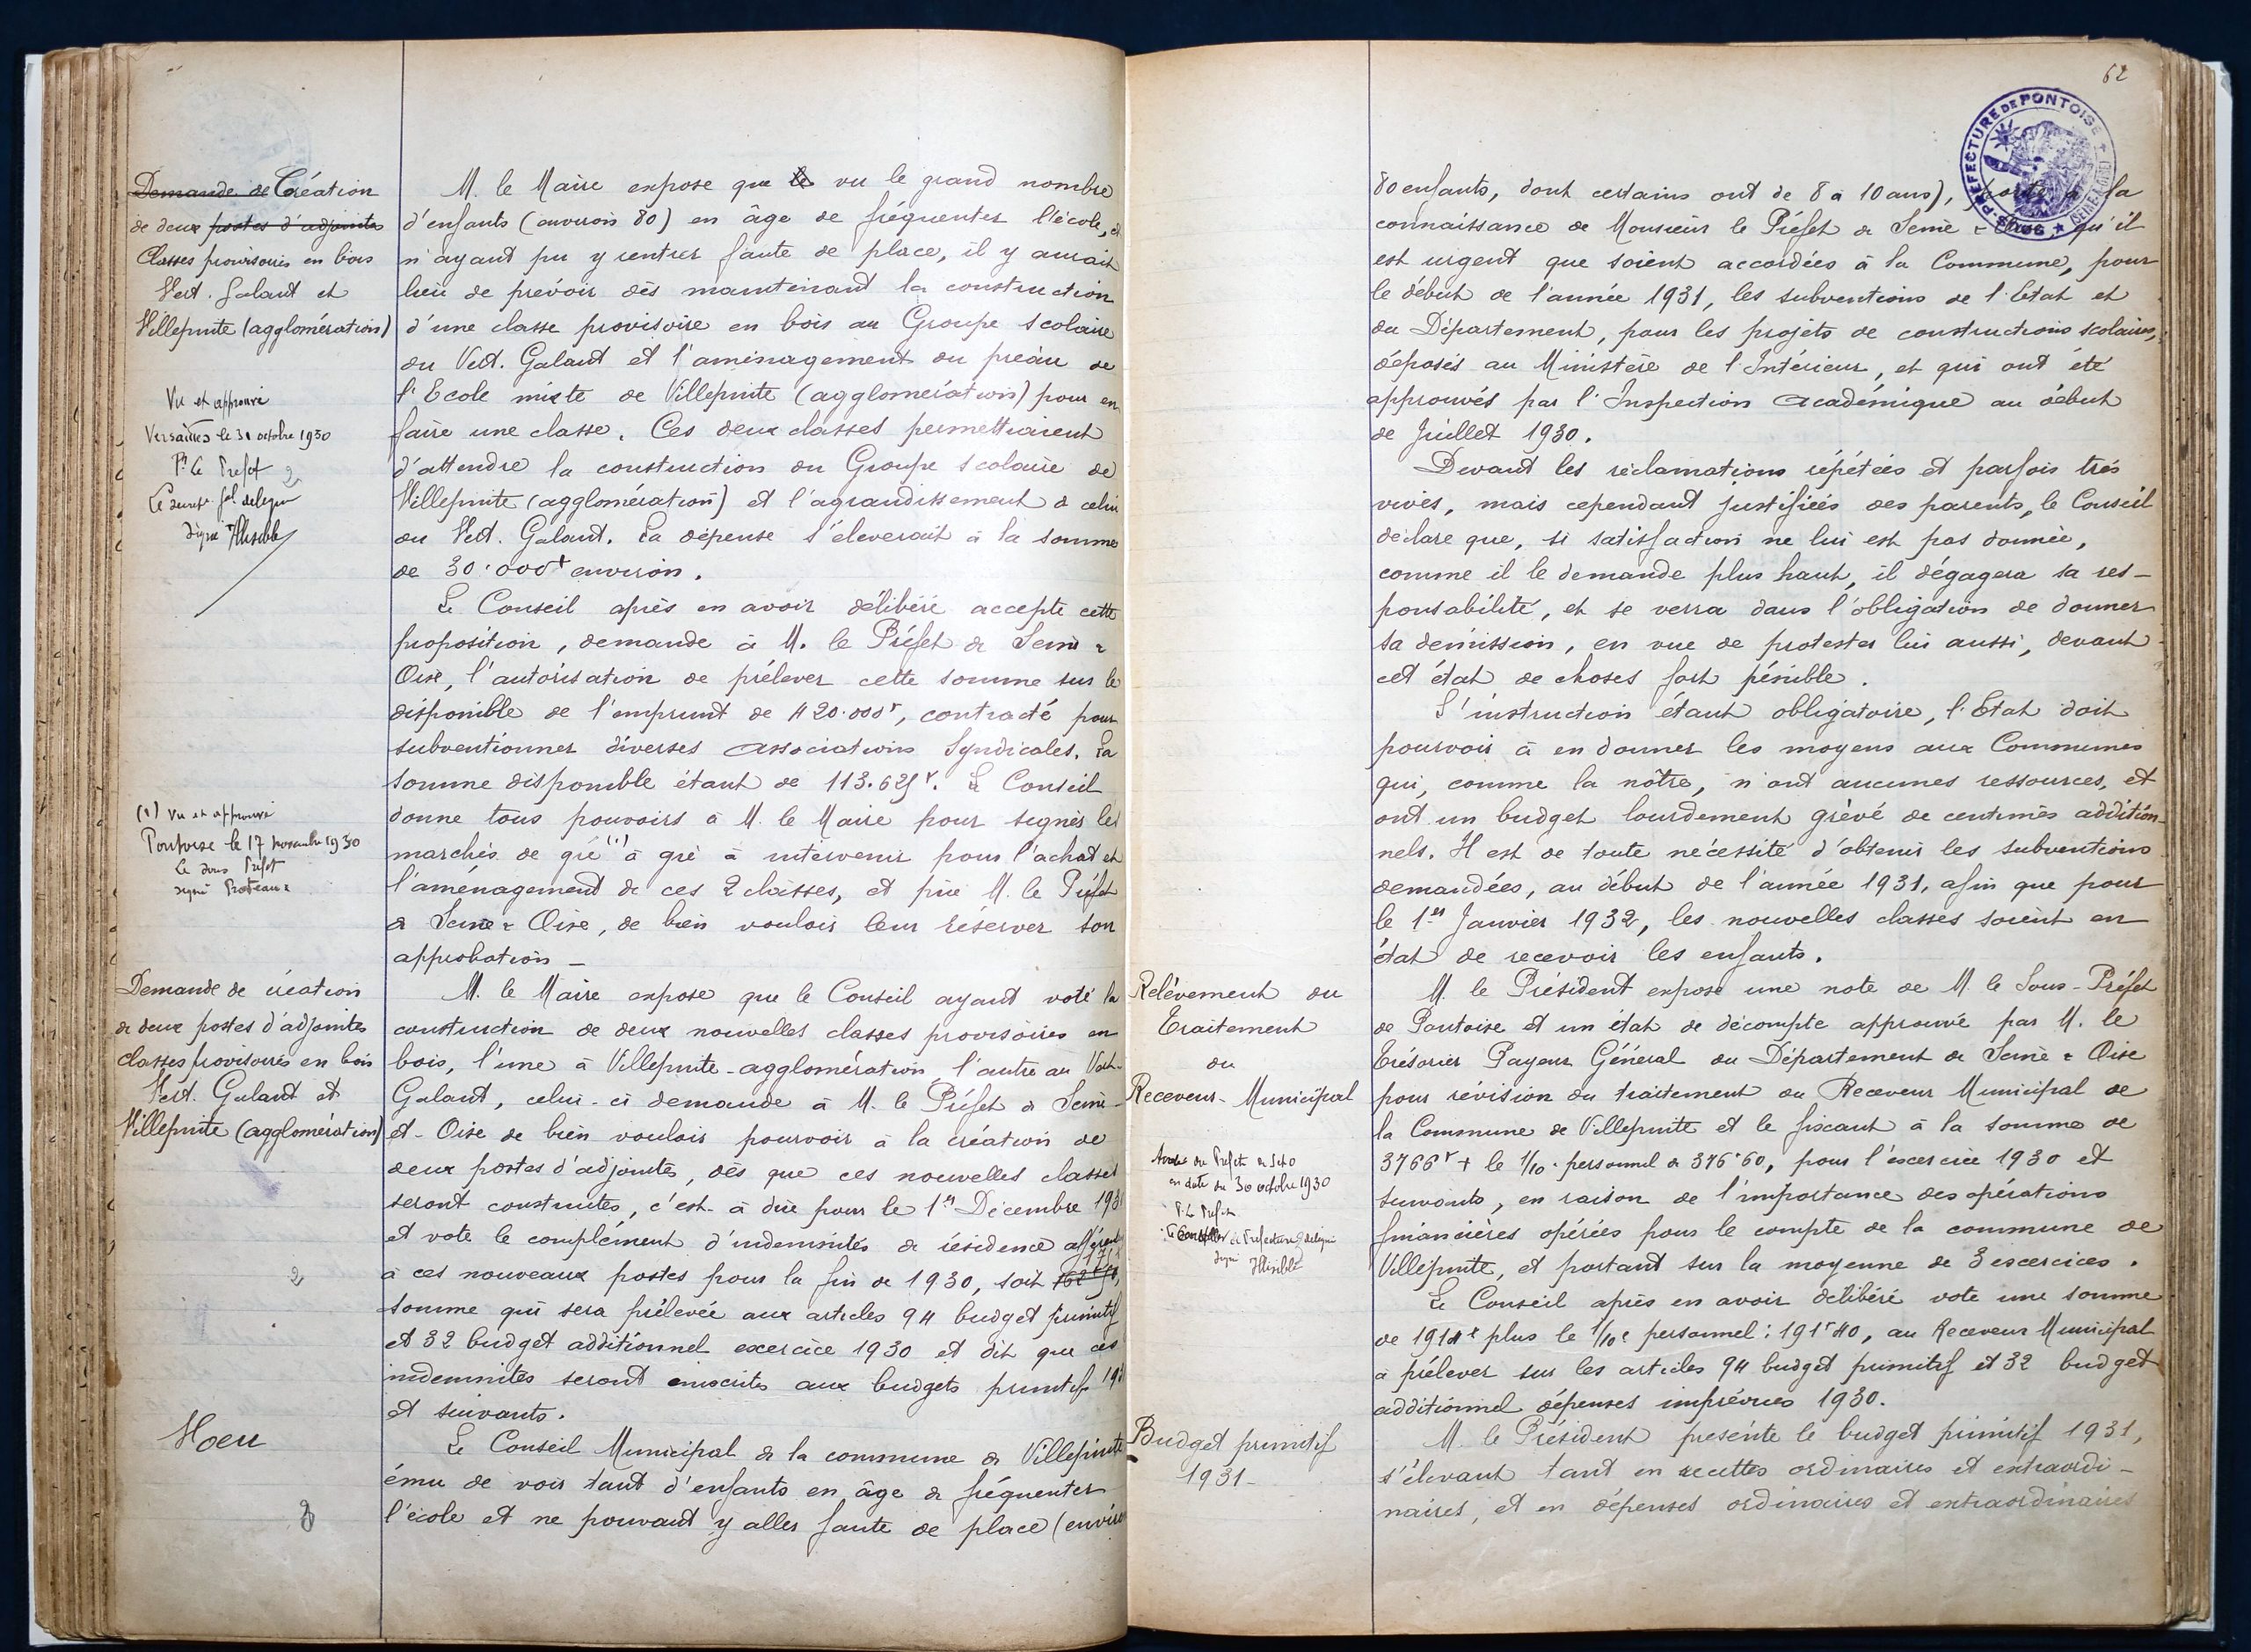 Demande de Création
de deux postes d'adjointes
Classes provisoires en bois
Vert. Galant et
Villepinte (agglomération)
Vu et approuvé
Versailles le 30 octobre 1930
Pr Le Prefet
Le secret. gal. delegue
Signé Illisible
M. le Maire expose que le vu le grand nombre
d'enfants (environ 80) en âge de fréquenter l'école, et
n'ayant pu y rentrer faute de place, il y aurait
lieu de prévoir dès maintenant la construction
d'une classe provisoire en bois au Groupe scolaire
du Vert. Galant et l'aménagement du préau de
l'Ecole mixte de Villepinte (agglomération) pour en
faire une classe. Ces deux classes permettraient
d'attendre la construction du Groupe scolaire de
Villepinte (agglomération) et l'agrandissement de celui
du Vert. Galant. La dépense s'éleverait à la somme
de 30.000f environ.
Le Conseil après en avoir délibéré accepte cette
proposition, demande à M. le Préfet de Seine &
Oise, l'autorisation de prélever cette somme sur le
disponible de l'emprunt de 420.000f, contracté pour
subventionner diverses associations Syndicales. La
somme disponible étant de 113.625f. Le Conseil
donne tous pouvoirs à M. le Maire pour signer les
marchés de gré (1) à gré à intervenir pour l'achat et
l'aménagement de ces 2 classes, et prie M. le Préfet
de Seine & Oise, de bien vouloir leur réserver son
approbation _
(1) Vu et approuvé
Pontoise le 17 novembre 1930
Le Sous Préfet
signé
Demande de création
de deux postes d'adjointes
classes provisoires en bois
Vert. Galant et
Villepinte (agglomération)
2
M. le Maire expose que le Conseil ayant voté la
construction de deux nouvelles classes provisoires en
bois, l'une à Villepinte-agglomération, l'autre au Vert-
Galant, celui-ci demande à M. le Préfet de Seine-
et-Oise de bien vouloir pourvoir à la création de
deux postes d'adjointes, dès que ces nouvelles classes
seront construites, c'est-à-dire pour le 1er Décembre 1930
et vote le complément d'indemnités de résidence afférent
à ces nouveaux postes pour la fin de 1930, soit
somme qui sera prélevée aux articles 94 budget primitif
et 32 budget additionnel exercice 1930 et dit que ces
indemnités seront inscrites aux budgets primitifs 193
et suivants.
Voeu
Le Conseil Municipal de la commune de Villepinte
ému de voir tant d'enfants en âge de fréquenter
l'école et ne pouvant y aller faute de place (environ
62
SOUS-PRÉFECTURE DE PONTOISE
80 enfants, dont certains ont de 8 à 10 ans), porte à la
connaissance de Monsieur le Préfet de Seine & Oise, qu'il
est urgent que soient accordées à la Commune, pour
le début de l'année 1931, les subventions de l'Etat et
du Département, pour les projets de constructions scolaires,
déposés au Ministère de l'Intérieur, et qui ont été
approuvés par l'Inspection Académique au début
de Juillet 1930.
Devant les réclamations répétées et parfois très
vives, mais cependant justifiées des parents, le Conseil
déclare que, si satisfaction ne lui est pas donnée,
comme il le demande plus haut, il dégagera sa res-
ponsabilité, et se verra dans l'obligation de donner
sa démission, en vue de protester lui aussi, devant
cet état de choses fort pénible.
L'instruction étant obligatoire, l'Etat doit
pourvoir à en donner les moyens aux Communes
qui, comme la nôtre, n'ont aucunes ressources, et
ont un budget lourdement grévé de centimes addition-
nels. Il est de toute nécessité d'obtenir les subventions
demandées, au début de l'année 1931, afin que pour
le 1er Janvier 1932, les nouvelles classes soient en
état de recevoir les enfants.
Relèvement du
Traitement
du
Receveur-Municipal
Arrêté du Préfet de S et O
en date du 30 octobre 1930
P. Le Préfet
Le Conseiller de Préfecture délégué
Signé Illisible
M. le Président expose une note de M. le Sous-Préfet
de Pontoise et un état de décompte approuvé par M. le
Trésorier Payeur Général du Département de Seine & Oise
pour révision du traitement du Receveur Municipal de
la Commune de Villepinte et le fixant à la somme de
3766f + le 1/10e personnel de 376f60, pour l'exercice 1930 et
suivants, en raison de l'importance des opérations
financières opérées pour le compte de la commune de
Villepinte, et portant sur la moyenne de 3 exercices.
Le Conseil après en avoir délibéré vote une somme
de 1914f plus le 1/10e personnel: 191f40, au Receveur Municipal
à prélever sur les articles 94 budget primitif et 32 budget
additionnel dépenses imprévues 1930.
Budget primitif
1931-
M. le Président présente le budget primitif 1931,
s'élevant tant en recettes ordinaires et extraordi-
naires, et en dépenses ordinaires et extraordinaires